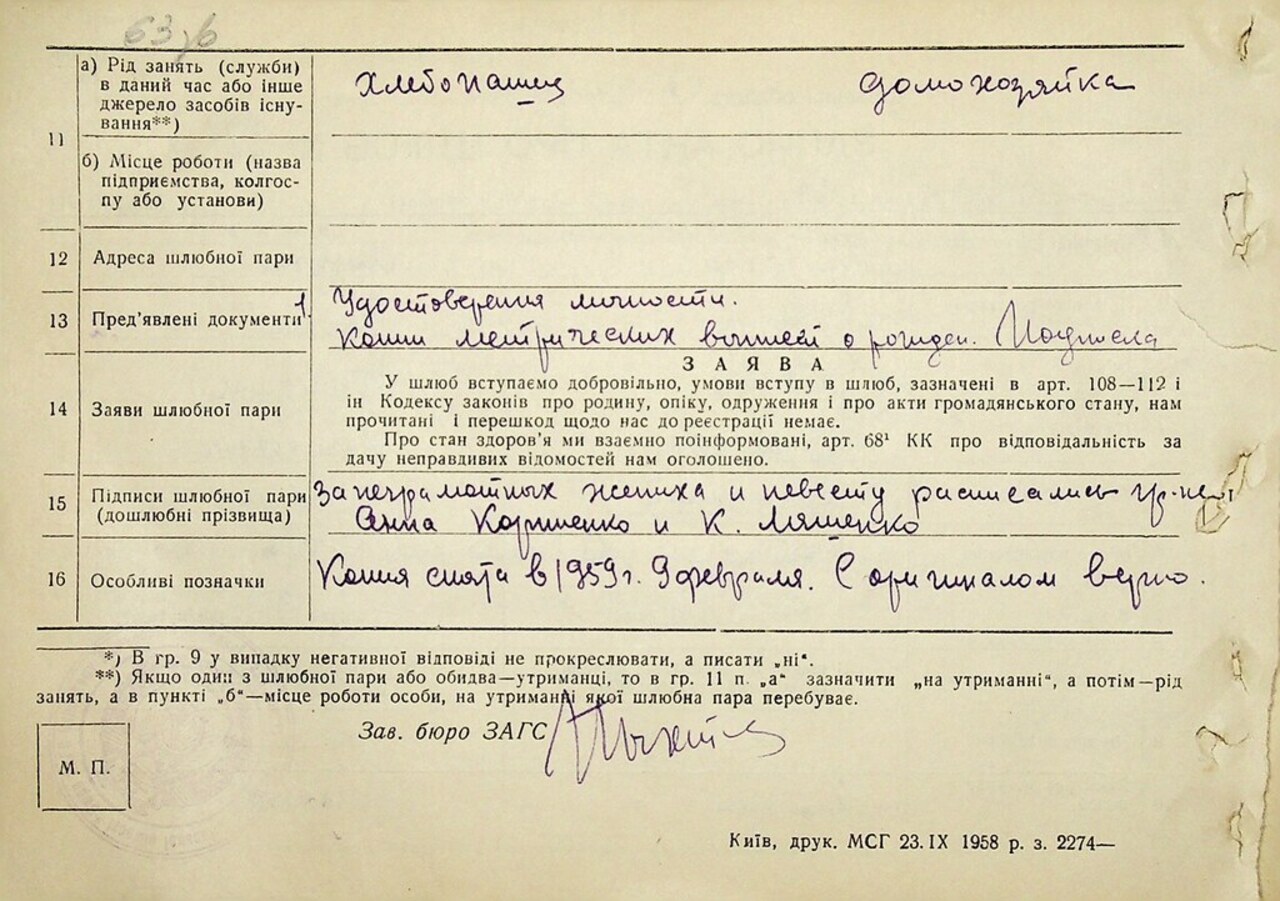 а) Рід занять (служби)
в даний час або інше
джерело засобів існу-
вання**)
Хлебопашец
домохозяйка
11
б) Місце роботи (назва
підприємства, колгос-
пу або установи)
12
Адреса шлюбної пари
13
Пред'явлені документи
1. Удостоверения личности.
Копии метрических выписей о рожден.
14
Заяви шлюбної пари
ЗАЯВА
У шлюб вступаємо добровільно, умови вступу в шлюб, зазначені в арт. 108—112 і
ін Кодексу законів про родину, опіку, одруження і про акти громадянського стану, нам
прочитані і перешкод щодо нас до реєстрації немає.
Про стан здоров'я ми взаємно поінформовані, арт. 68¹ КК про відповідальність за
дачу неправдивих відомостей нам оголошено.
15
Підписи шлюбної пари
(дошлюбні прізвища)
За неграмотных жениха и невесту расписались
Анна Коршенко и К. Ляшенко
16
Особливі позначки
Копия снята в 1959 г. 9 февраля. С оригиналом верно.
*) В гр. 9 у випадку негативної відповіді не прокреслювати, а писати „ні“.
**) Якщо один з шлюбної пари або обидва—утриманці, то в гр. 11 п. „а“ зазначити „на утриманні“, а потім—рід
занять, а в пункті „б“—місце роботи особи, на утриманні якої шлюбна пара перебуває.
Зав. бюро ЗАГС
М. П.
Київ, друк. МСГ 23.IX 1958 р. з. 2274—